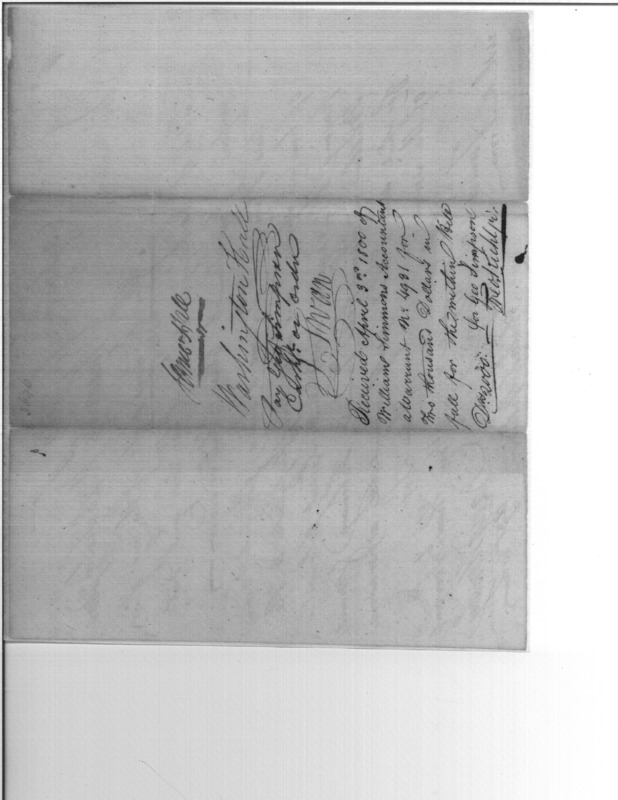 Washington Hall
Pay Geo Simpson
Cashr. or order
J Swan
Received April 3d. 1800 of
William Simmons Accountant
a Warrant No. 4931 for
Two thousand Dollars in
full for the within Bill
for Geo Simpson